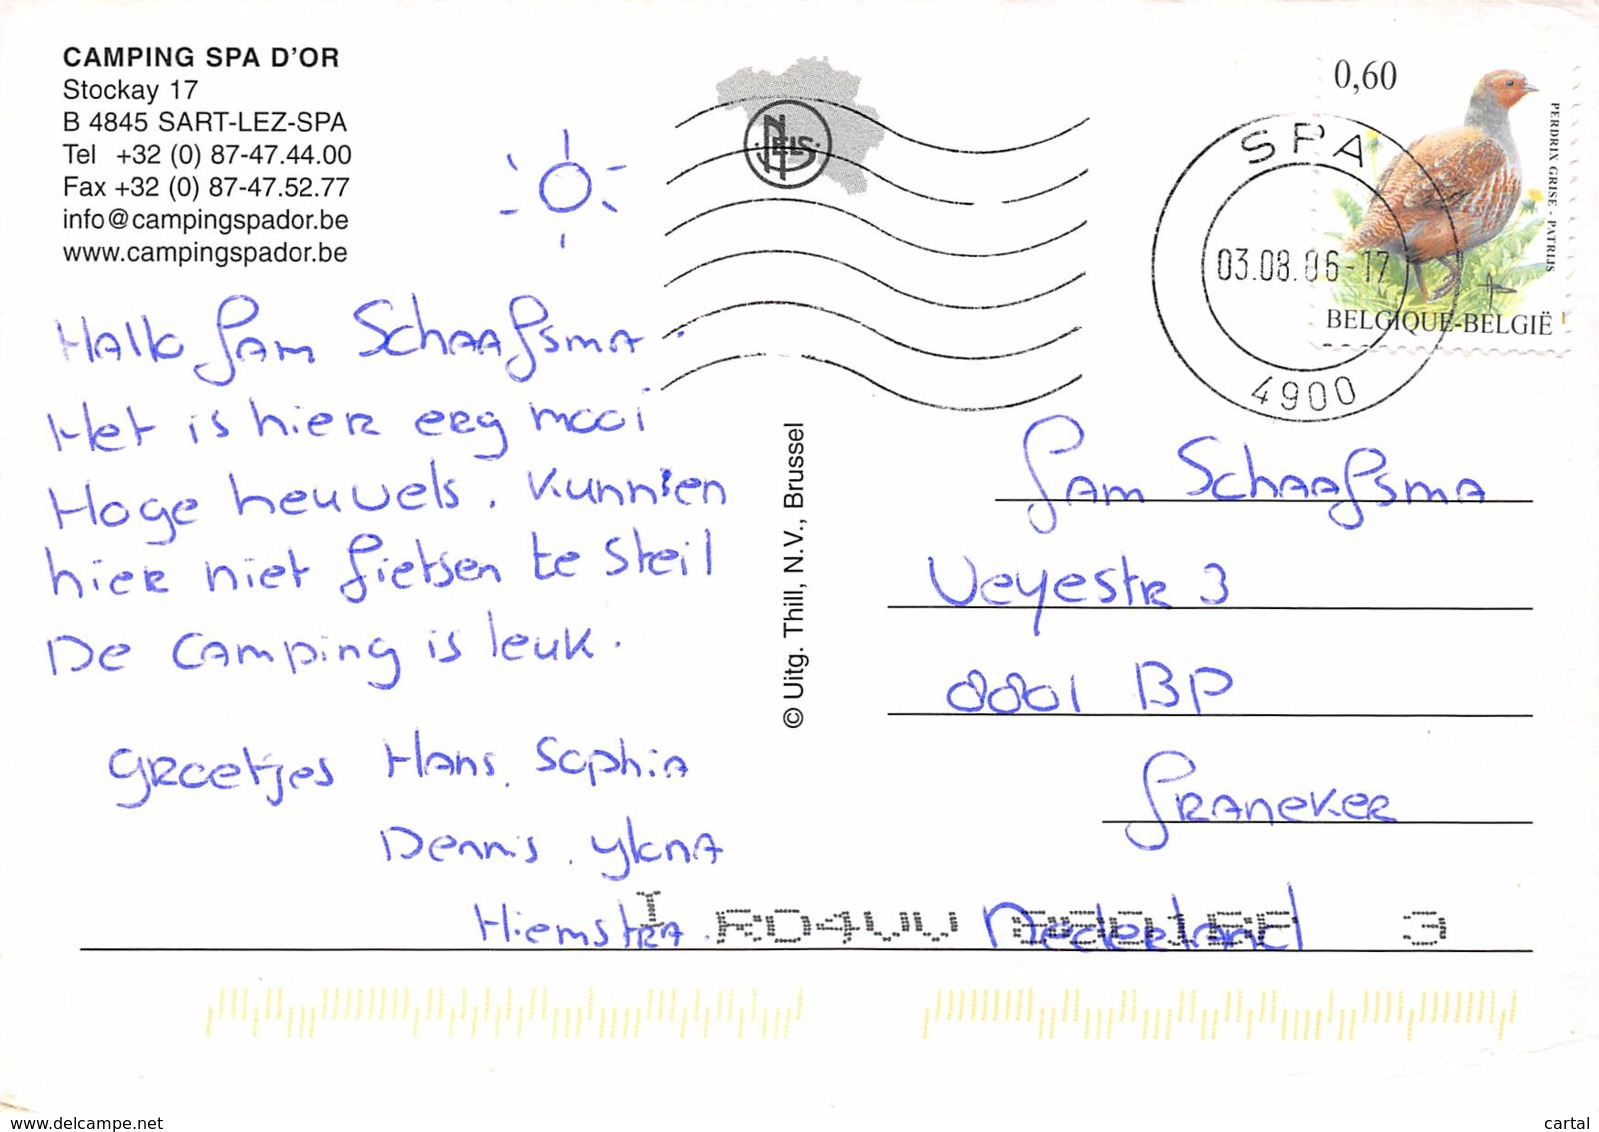 CAMPING SPA D'OR
Stockay 17
B 4845 SART-LEZ-SPA
Tel +32 (0) 87-47.44.00
Fax +32 (0) 87-47.52.77
info@campingspador.be
www.campingspador.be
NELS
0,60
PERDRIX GRISE - PATRIJS
BELGIQUE-BELGIË
SPA
03.08.06-17
4900
Hallo fam Schaafsma.
Het is hier erg mooi
Hoge heuvels. Kunnen
hier niet fietsen te steil
De camping is leuk.
Groetjes Hans. Sophia
Dennis. Ykna
Hiemstra.
© Uitg. Thill, N.V., Brussel
fam Schaafsma
Veyestr 3
8801 BP
Franeker
Nederland
3
www.delcampe.net
cartal